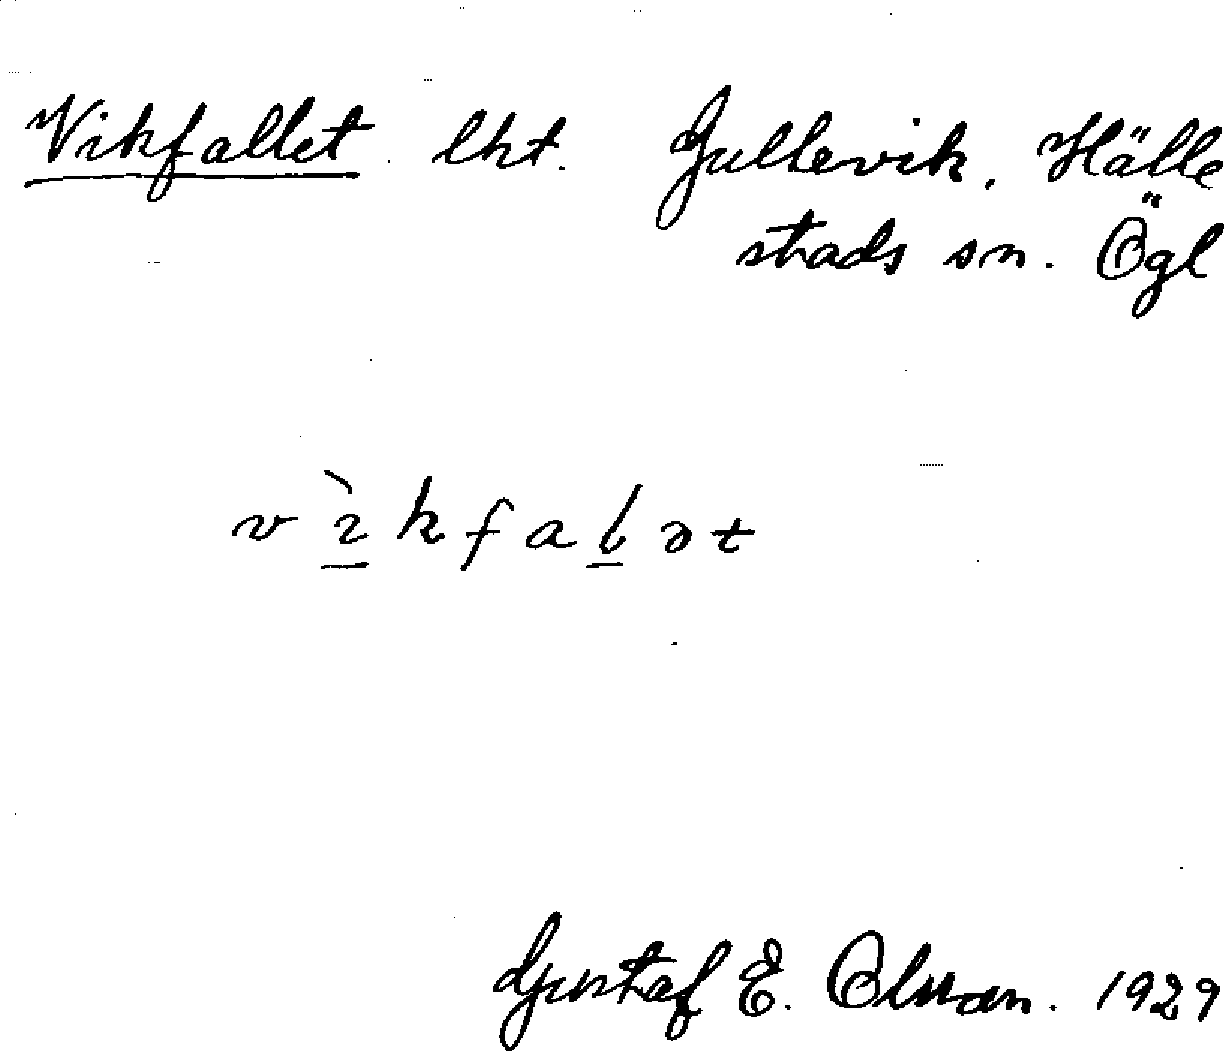 Vikfallet lht. Gullevik, Hälle
stads sn. Ögl
v ì k f a l ə t
Gustaf E. Olsson. 1929